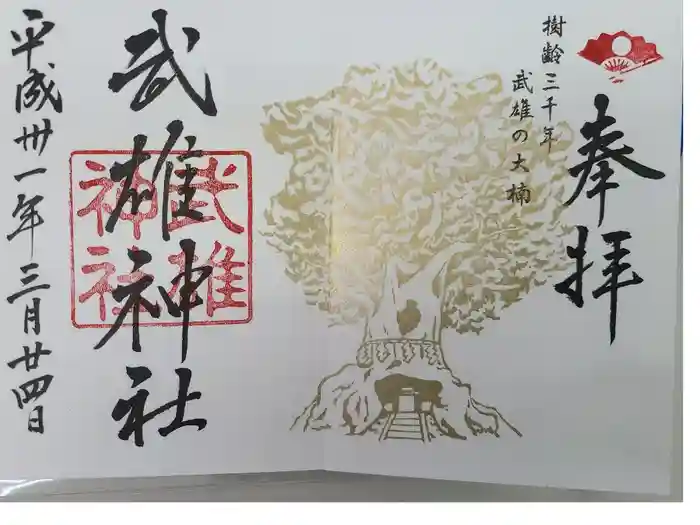 奉拝
樹齢三千年
武雄の大楠
武雄神社
武雄
神社
平成卅一年三月廿四日